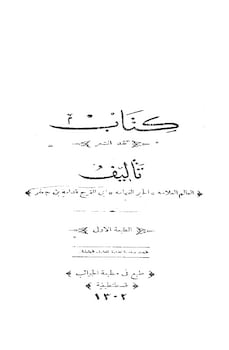 كتاب
نقد الشعر
تأليف
العالم العلامه والحبر الفهامه ابى الفرج قدامة بن جعفر
الطبعة الاولى
طبع فى مطبعة الجوائب
قسطنطينية
١٣٠٢